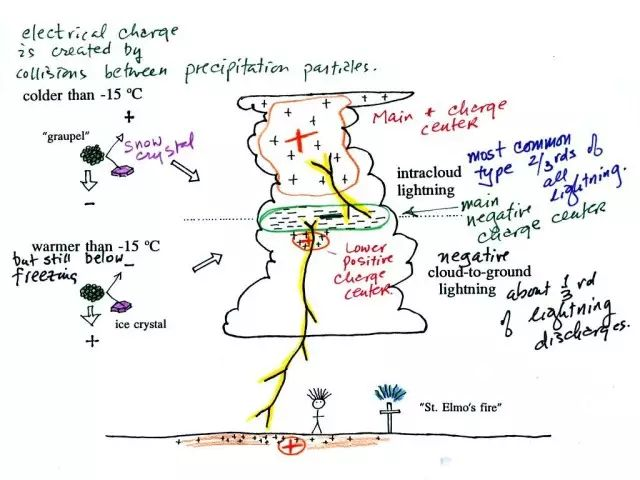 electrical charge
is created by
collisions between precipitation particles.
colder than -15 °C
+
"graupel"
snow
crystal
−
warmer than -15 °C
but still below
freezing
−
ice crystal
+
Main + charge
center
intracloud
lightning
most common
type 2/3rds of
all
lightning.
main
negative
charge center
Lower
positive
charge
center.
negative
cloud-to-ground
lightning
about 1/3 rd
of lightning
discharges.
"St. Elmo's fire"